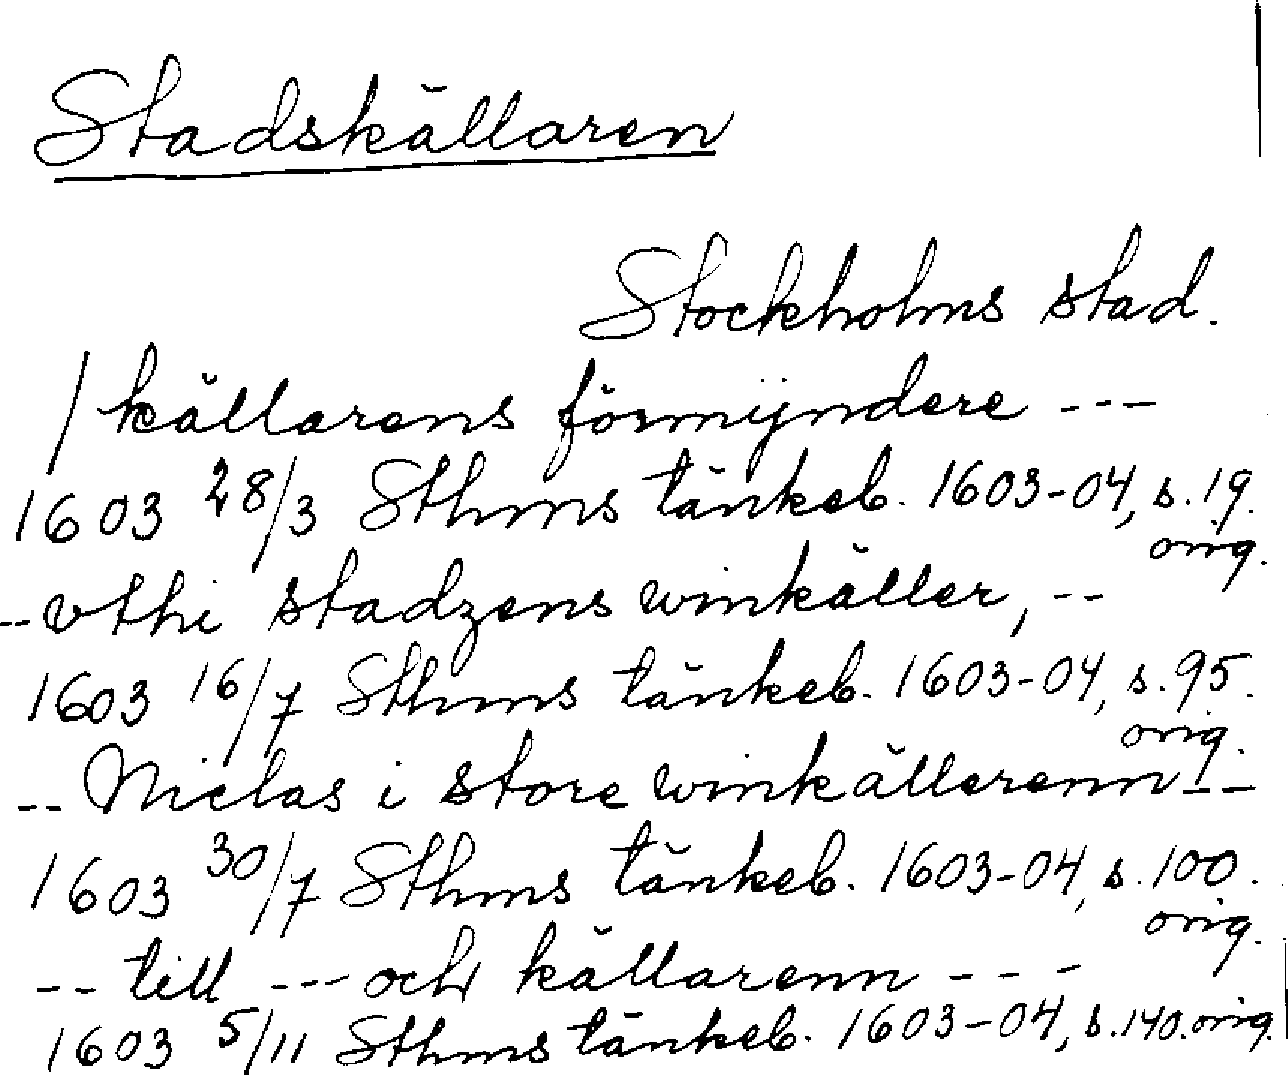 Stadskällaren
Stockholms stad.
/ källarens förmÿndere ---
1603 28/3 Sthms tänkeb. 1603-04, s. 19.
orig.
-- vthi stadzens winkäller, --
1603 16/7 Sthms tänkeb. 1603-04, s. 95.
orig.
-- Niclas i store winkällerenn --
1603 30/7 Sthms tänkeb. 1603-04, s. 100.
orig.
-- till --- och källarenn ---
1603 5/11 Sthms tänkeb. 1603-04, s. 140. orig.